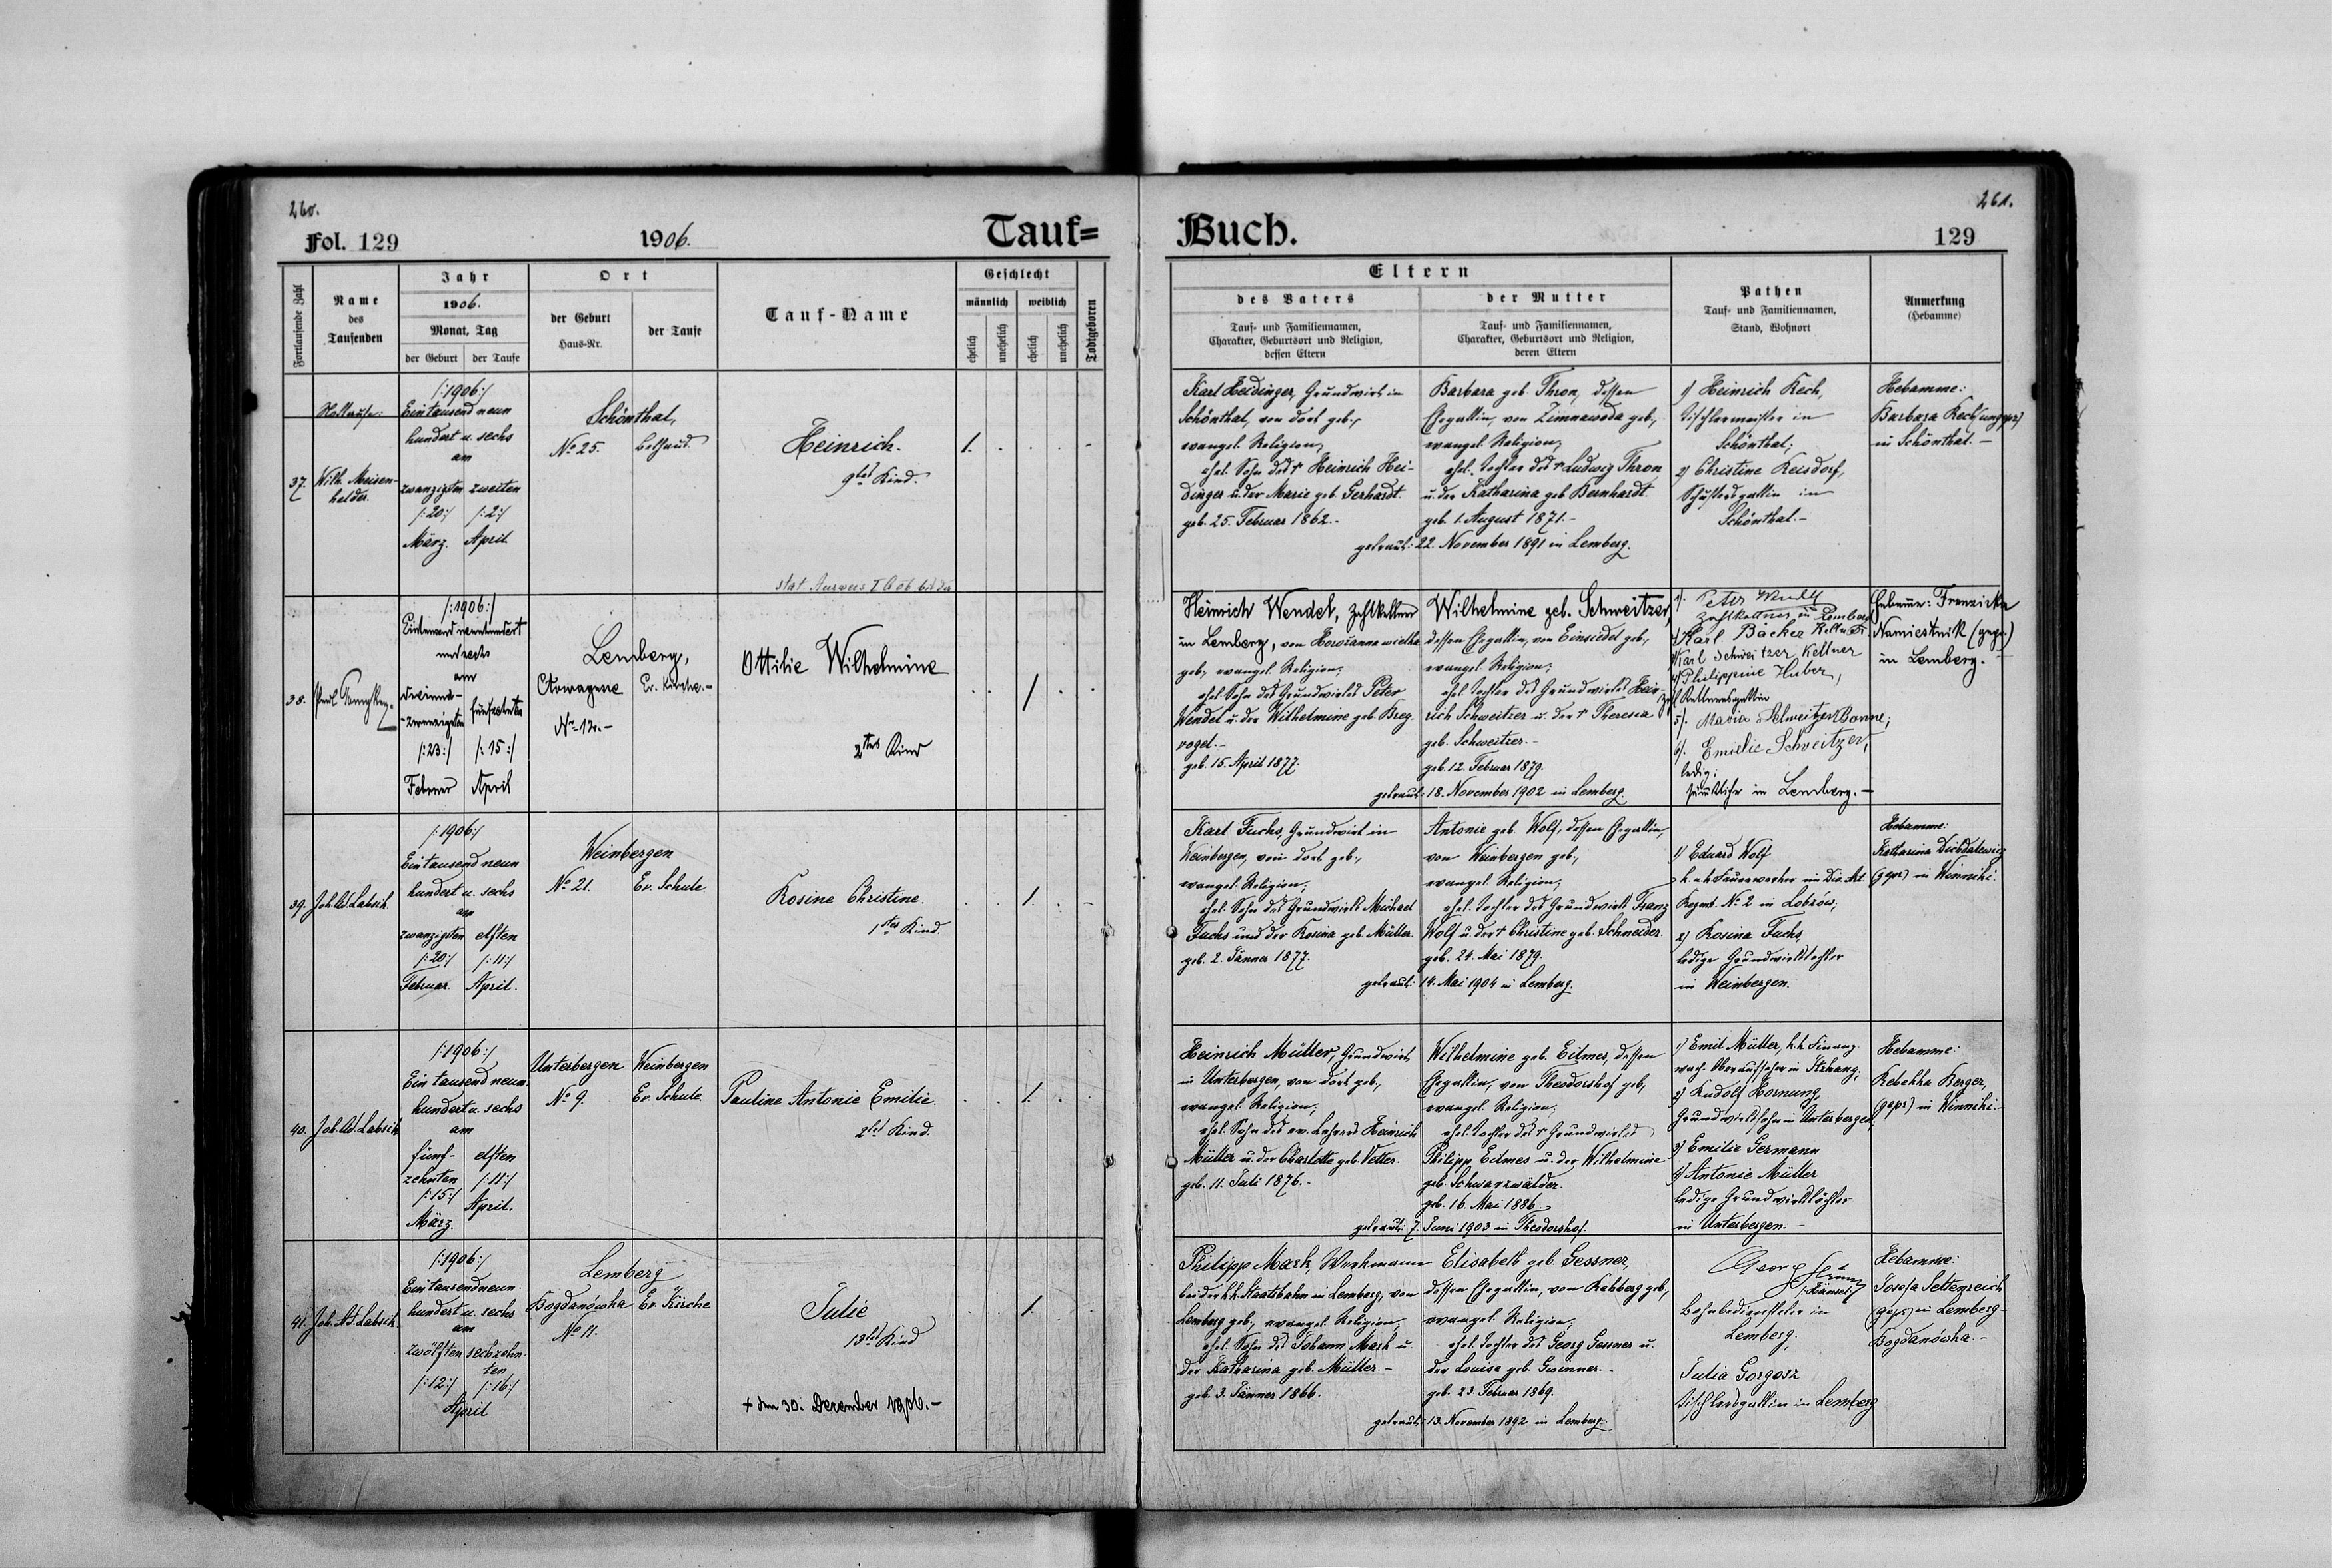 260.
Fol. 129
1906.
Tauf=
Fortlaufende Zahl
Name
des
Taufenden
Jahr
1906.
Monat, Tag
der Geburt
der Taufe
Ort
der Geburt
Haus-Nr.
der Taufe
Tauf-Name
Geschlecht
männlich
weiblich
ehelich
unehelich
ehelich
unehelich
Todtgeboren
37.
Wilh. Meisen-
helder.
/:1906:/
Eintausend neun
hundert u. sechs
am
zwanzigsten zweiten
/:20:/ /:2:/
März. April.
Schönthal,
No 25. Bethaus.
Heinrich.
9tes Kind.
1.
38.
/:1906:/
Eintausend neunhundert
und sechs
am
dreiund-
-zwanzigsten fünfzehnten
/:23:/ /:15:/
Februar April
Lemberg,
Ev. Kirche.-
No 12.-
Ottilie Wilhelmine
2tes Kind
39. Joh. Ad. Labsik.
/:1906:/
Eintausend neun
hundert u. sechs
am
zwanzigsten elften
/:20:/ /:11:/
Februar. April.
Weinbergen
No 21. Ev. Schule
Rosine Christine.
1stes Kind.
1.
40. Joh. Ad. Labsik
/:1906:/
Ein tausend neun-
hundert u. sechs
am
fünf- elften
zehnten /:11:/
/:15:/ April.
März.
Unterbergen Weinbergen
No 9. Ev. Schule.
Pauline Antonie Emilie.
2tes Kind.
1.
41. Joh. Ad. Labsik.
/:1906:/
Ein tausendneun-
hundert u. sechs
am
zwölften sechzehn-
ten
/:12:/ /:16:/
April
Lemberg
Bogdanówka Ev. Kirche
No 11.
Julie
13tes Kind
+ den 30. Dezember 1906.-
1.
261.
Buch.
129
Eltern
des Vaters
Tauf- und Familiennamen,
Charakter, Geburtsort und Religion,
dessen Eltern
der Mutter
Tauf- und Familiennamen,
Charakter, Geburtsort und Religion,
deren Eltern
Pathen
Tauf- und Familiennamen,
Stand, Wohnort
Anmerkung
(Hebamme)
Karl Heidinger, Grundwirt in
Schönthal, von dort geb.,
evangel. Religion,
ehel. Sohn des + Heinrich Hei-
dinger u. der Marie geb. Gerhardt.
geb. 25. Februar 1862.-
Barbara geb. Thron, dessen
Ehegattin, von Zimnawoda geb.,
evangel. Religion,
ehel. Tochter des + Ludwig Thron
u. der Katharina geb. Bernhardt.
geb. 1. August 1871.-
getraut: 22. November 1891 in Lemberg.
1) Heinrich Kech,
Tischlermeister in
Schönthal;
2) Christine Reisdorf,
Schustersgattin in
Schönthal.-
Hebamme:
Barbara Kech (ungepr.)
in Schönthal.-
Heinrich Wendel, Zahlkellner
in Lemberg, von
geb., evangel. Religion;
ehel. Sohn des Grundwirtes Peter
Wendel u. der Wilhelmine geb. Breg-
vogel.-
geb. 15. April 1877.
Wilhelmine geb. Schweitzer,
dessen Ehegattin, von Einsiedel geb.,
evangel. Religion;
ehel. Tochter des Grundwirtes Hein-
rich Schweitzer u. der + Theresia
geb. Schweitzer.-
geb. 12. Februar 1879.
getraut: 18. November 1902 in Lemberg.
1) Peter
Zahlkellner in Lemberg
2) Karl Bäcker Kellner
3) Karl Schweitzer Kellner
4) Philippine Huber,
Zahlkellnersgattin
5). Maria Schweitzer Bonne;
6). Emilie Schweitzer,
ledig;
sämtliche in Lemberg.-
Hebamme: Franziska
Namiestnik (gepr.)
in Lemberg.-
Karl Fuchs, Grundwirt in
Weinbergen, von dort geb.,
evangel. Religion;
ehel. Sohn des Grundwirts Michael
Fuchs und der Rosina geb. Müller.
geb. 2. Jänner 1877.
Antonie geb. Wolf, dessen Ehegattin,
von Weinbergen geb.,
evangel. Religion;
ehel. Tochter des Grundwirts Franz
Wolf u. der + Christine geb. Schneider.
geb. 24. Mai 1879.
getraut: 14. Mai 1904 in Lemberg.
1) Eduard Wolf
k. u. k. Feuerwerker im Div. Art.
Regmt. No 2 in Lobzów;
2) Rosina Fuchs,
ledige Grundwirtstochter
in Weinbergen.
Hebamme:
Katharina
(gepr.) in Winniki.
Heinrich Müller, Grundwirt
in Unterbergen, von dort geb.,
evangel. Religion;
ehel. Sohn des ev. Lehrers Heinrich
Müller u. der Charlotte geb. Vetter.
geb. 11. Juli 1876.-
Wilhelmine geb. Eilmes, dessen
Ehegattin, von Theodorshof geb.,
evangel. Religion;
ehel. Tochter des + Grundwirtes
Philipp Eilmes u. der Wilhelmine
geb. Schwarzwälder.
geb. 16. Mai 1886.
getraut: 7. Juni 1903 in Theodorshof.
1) Emil Müller, k. k. Finanz-
wach-Oberaufseher in
2) Rudolf Hornung,
Grundwirtssohn in Unterbergen,
3) Emilie Germann
4) Antonie Müller
ledige Grundwirtstöchter
in Unterbergen.-
Hebamme:
Rebekka Berger,
(gepr) in Winniki.-
Philipp Mark, Werkmann
bei der k.k. Staatsbahn in Lemberg, von
Lemberg geb., evangel. Religion,
ehel. Sohn des Johann Mark u.
der Katharina geb. Müller.-
geb. 3. Jänner 1866.
Elisabeth geb. Gessner,
dessen Ehegattin von Rehberg geb.,
evangel. Religion;
ehel. Tochter des Georg Gessner u.
der Louisa geb. Gwinner.-
geb. 23. Februar 1869.
getraut: 13. November 1892 in Lemberg.-
Georg
Bahnbediensteter in
Lemberg;
Julia Gorgosz
Tischlersgattin in Lemberg
Hebamme:
Josefa Settenreich
(gepr) in Lemberg-
Bogdanówka.-